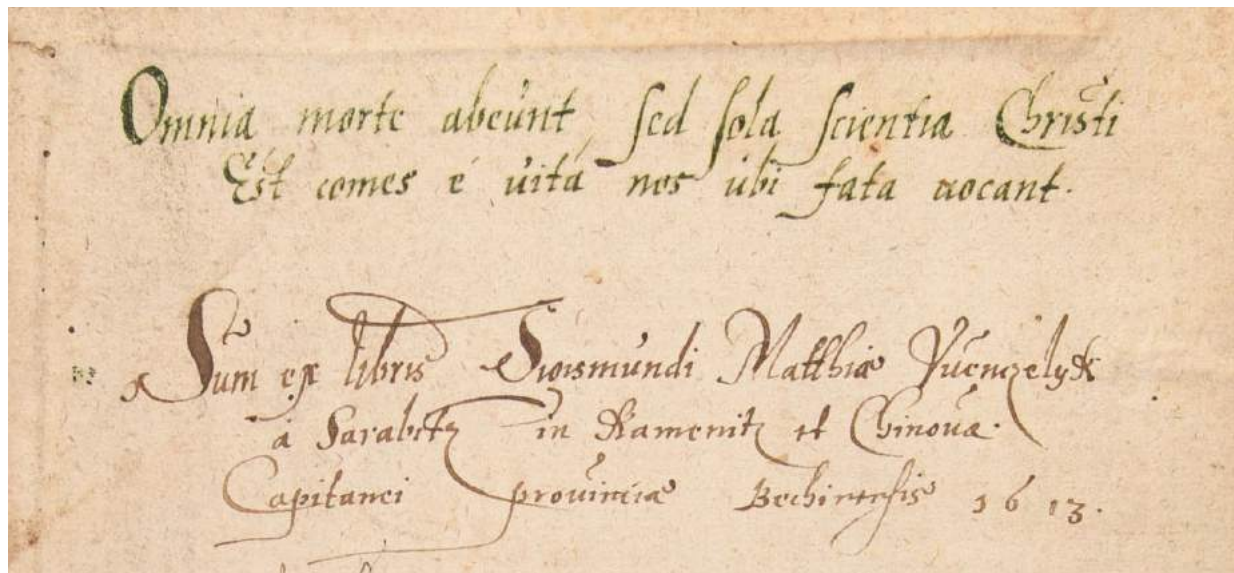 Omnia morte abeunt, sed sola scientia Christi
Est comes é vitá nos ubi fata vocant.
Sum ex libris Sigismundi Matthiæ Vuenczelyk
á Sarabetz in Kamenitz et Chinouæ.
Capitanei prouinciæ Bechinensis 1613.